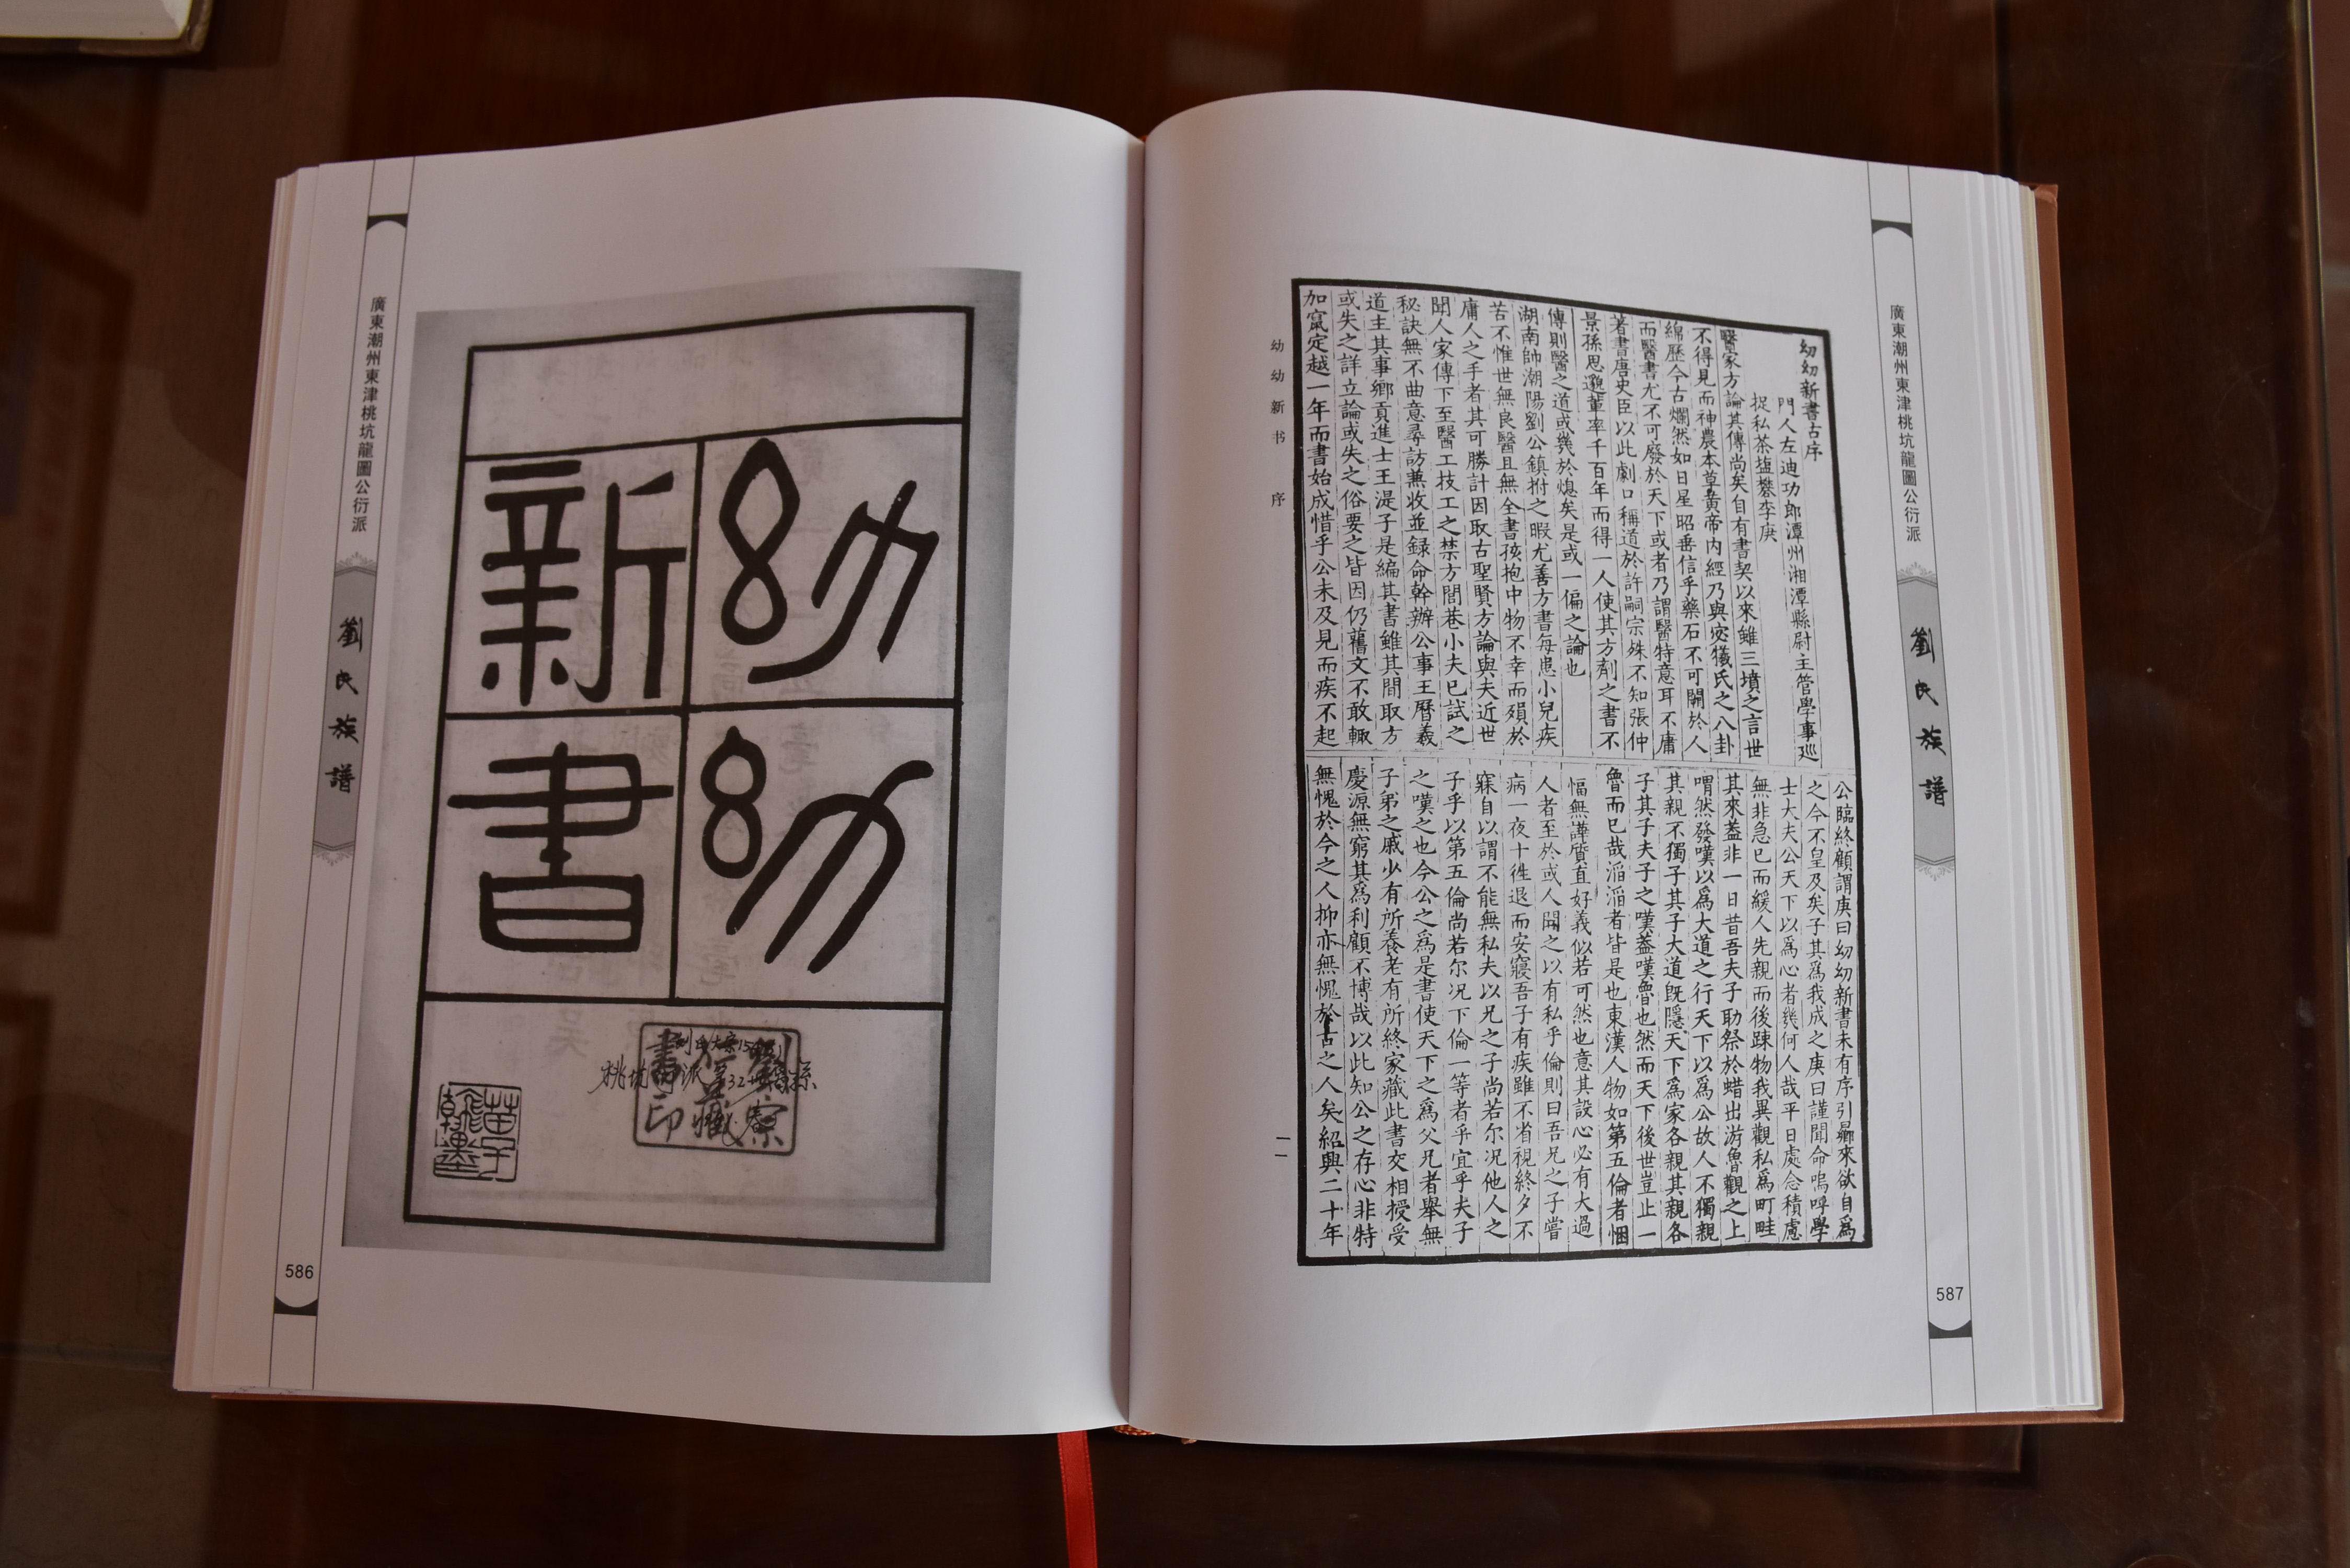 廣東潮州東津桃坑龍圖公衍派
劉氏族譜
586
幼幼
新書
劉察
藏
書印
苗子
翰墨
廣東潮州東津桃坑龍圖公衍派
劉氏族譜
587
幼幼新書古序
門人左迪功郎潭州湘潭縣尉主管學事巡
捉私茶塩礬李庚
醫家方論其傳尚矣自有書契以來雖三墳之言世
不得見而神農本草黃帝内經乃與宓犧氏之八卦
綿歷今古爛然如日星昭垂信乎藥石不可闕於人
而醫書尤不可廢於天下或者乃謂醫特意耳不庸
著書唐史臣以此劇口稱道於許嗣宗殊不知張仲
景孫思邈輩率千百年而得一人使其方劑之書不
傳則醫之道或幾於熄矣是或一偏之論也
湖南帥潮陽劉公鎮拊之暇尤善方書每患小兒疾
苦不惟世無良醫且無全書孩抱中物不幸而殞於
庸人之手者其可勝計因取古聖賢方論與夫近世
聞人家傳下至醫工技工之禁方閭巷小夫已試之
秘訣無不曲意尋訪兼收並録命幹辦公事王曆羲
道主其事鄉貢進士王湜子是編其書雖其間取方
或失之詳立論或失之俗要之皆因仍舊文不敢輒
加竄定越一年而書始成惜乎公未及見而疾不起
公臨終顧謂庚曰幼幼新書未有序引曏來欲自爲
之今不皇及矣子其爲我成之庚曰謹聞命嗚呼學
士大夫公天下以爲心者幾何人哉平日處念積慮
無非急已而緩人先親而後踈物我異觀私爲町畦
其來葢非一日昔吾夫子助祭於蜡出游魯觀之上
喟然發嘆以爲大道之行天下以爲公故人不獨親
其親不獨子其子大道既隱天下爲家各親其親各
子其子夫子之嘆葢嘆魯也然而天下後世豈止一
魯而已哉滔滔者皆是也東漢人物如第五倫者悃
愊無譁質直好義似若可然也意其設心必有大過
人者至於或人問之以有私乎倫則曰吾兄之子嘗
病一夜十徃退而安寢吾子有疾雖不省視終夕不
寐自以謂不能無私夫以兄之子尚若尔况他人之
子乎以第五倫尚若尔况下倫一等者乎宜乎夫子
之嘆之也今公之爲是書使天下之爲父兄者舉無
子弟之戚少有所養老有所終家藏此書交相授受
慶源無窮其爲利顧不博哉以此知公之存心非特
無愧於今之人抑亦無愧於古之人矣紹興二十年
幼幼新书 序
二